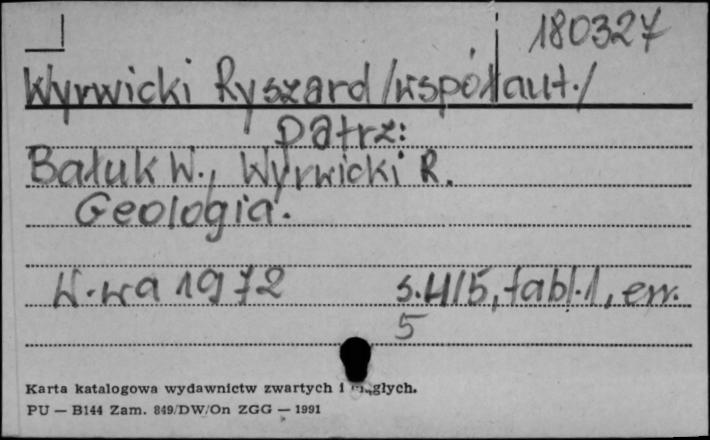 180327
Wyrwicki Ryszard /współaut./
Patrz:
Bałuk W., Wyrwicki R.
Geologia.
W-wa 1972 s.415, tabl.1, err.
5
Karta katalogowa wydawnictw zwartych i ciągłych.
PU — B144 Zam. 849/DW/On ZGG — 1991